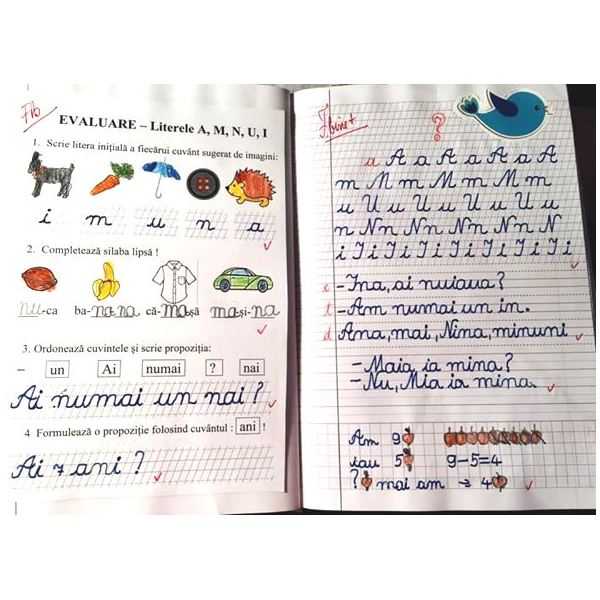 Fb
EVALUARE – Literele A, M, N, U, I
1. Scrie litera inițială a fiecărui cuvânt sugerat de imagini:
i m u n a
2. Completează silaba lipsă !
nu-ca ba-na-na că-ma-șă ma-și-na
3. Ordonează cuvintele și scrie propoziția:
– un Ai numai ? nai
Ai numai un nai ?
4 Formulează o propoziție folosind cuvântul : ani !
Ai 7 ani ?
F. bine +
?
u A a A a A a A
m M m M m M m
u U u U u U U u
n N n N n N n N
i I i I i I i I i I i I i
i -Ina, ai nuiaua?
t -Am numai un in.
d Ana, mai, Nina, minuni
-Maia ia mina?
-Nu, Mia ia mina.
Am 9
iau 5 9-5=4
? mai am → 4